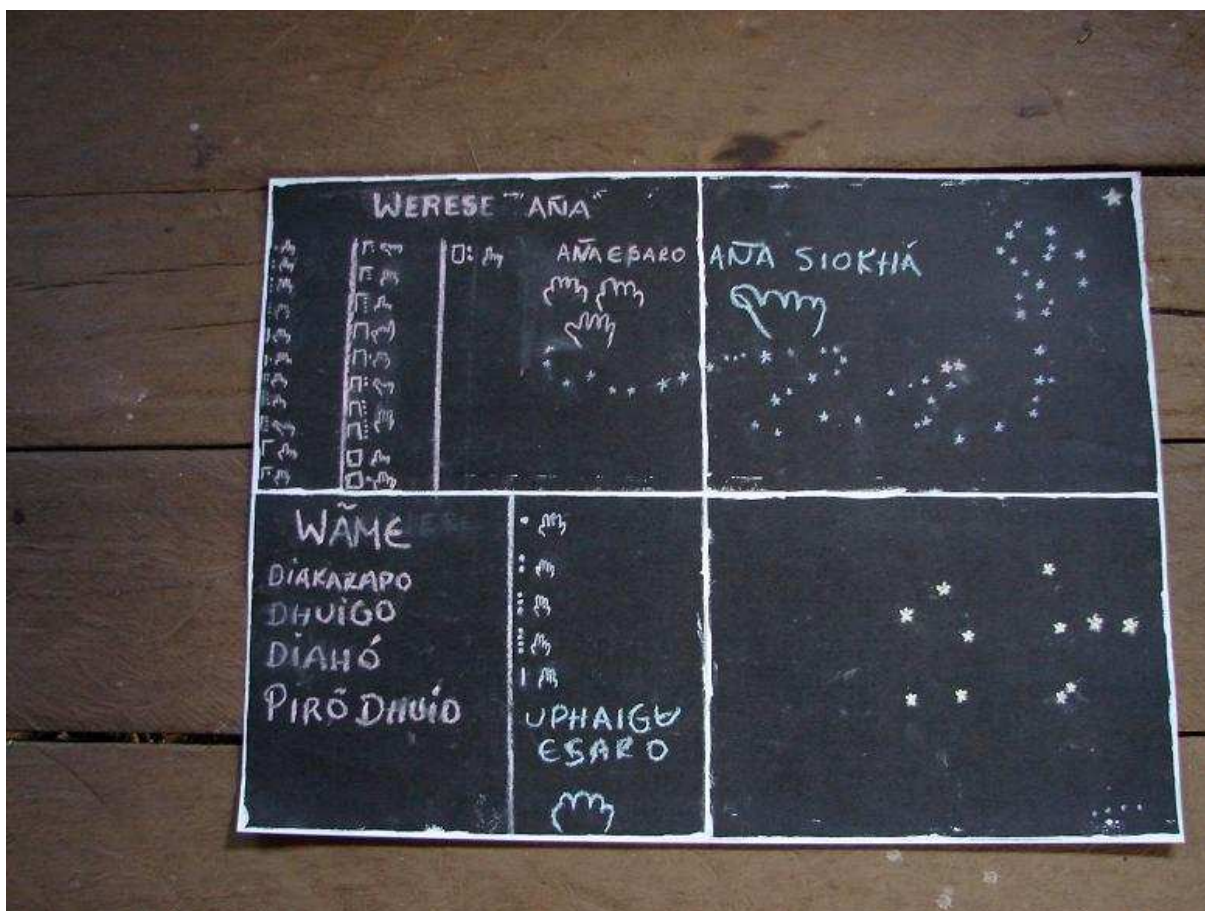 WERESE "AÑA"
AÑA ESARO
AÑA SIOKHÁ
WÃME
DIAKARAPO
DHUIGO
DIAHÓ
PIRÕ DHUIO
UPHAIGɄ
ESARO